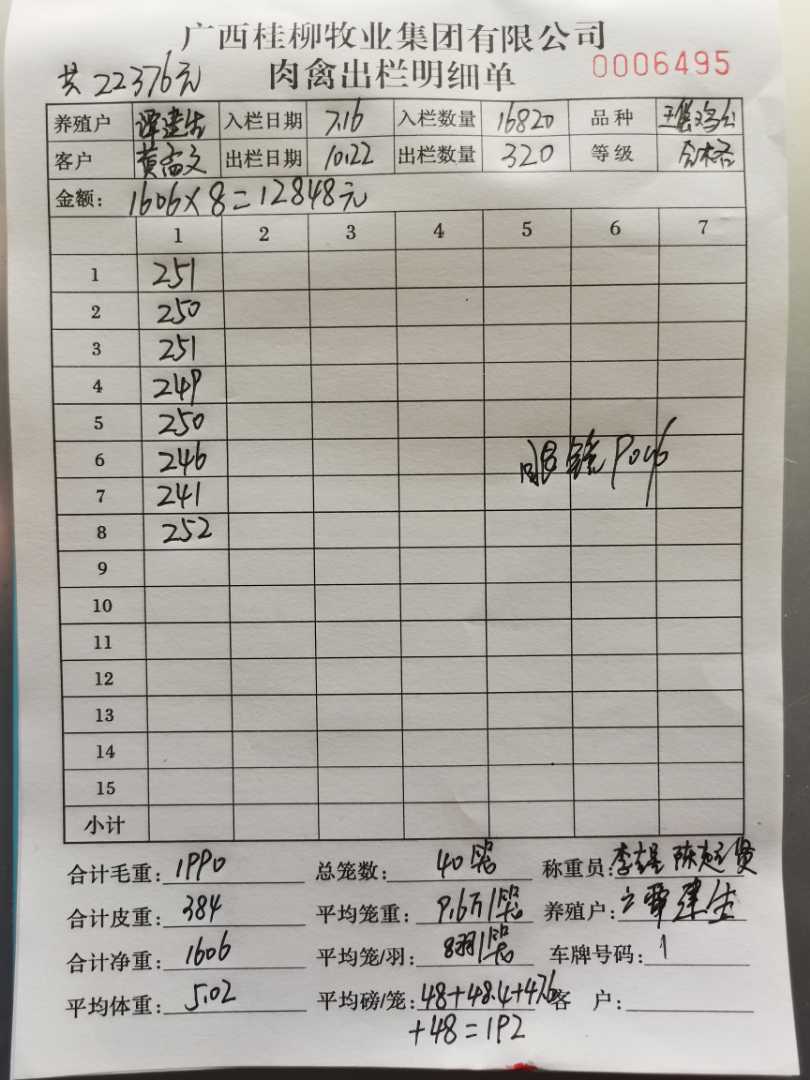 广西桂柳牧业集团有限公司
共22376元 肉禽出栏明细单 0006495
养殖户 谭建生 入栏日期 7.16 入栏数量 16820 品种
客户 黄富文 出栏日期 10.22 出栏数量 320 等级 合格
金额: 1606×8=12848元
1 2 3 4 5 6 7
1 251
2 250
3 251
4 249
5 250
6 246 眼镜9046
7 241
8 252
9
10
11
12
13
14
15
小计
合计毛重: 1990 总笼数: 40笼 称重员:
合计皮重: 384 平均笼重: 9.6斤/笼 养殖户: 谭建生
合计净重: 1606 平均笼/羽: 8羽/笼 车牌号码: 1
平均体重: 5.02 平均磅/笼: 48+48.4+47.6 客 户:
+48=192